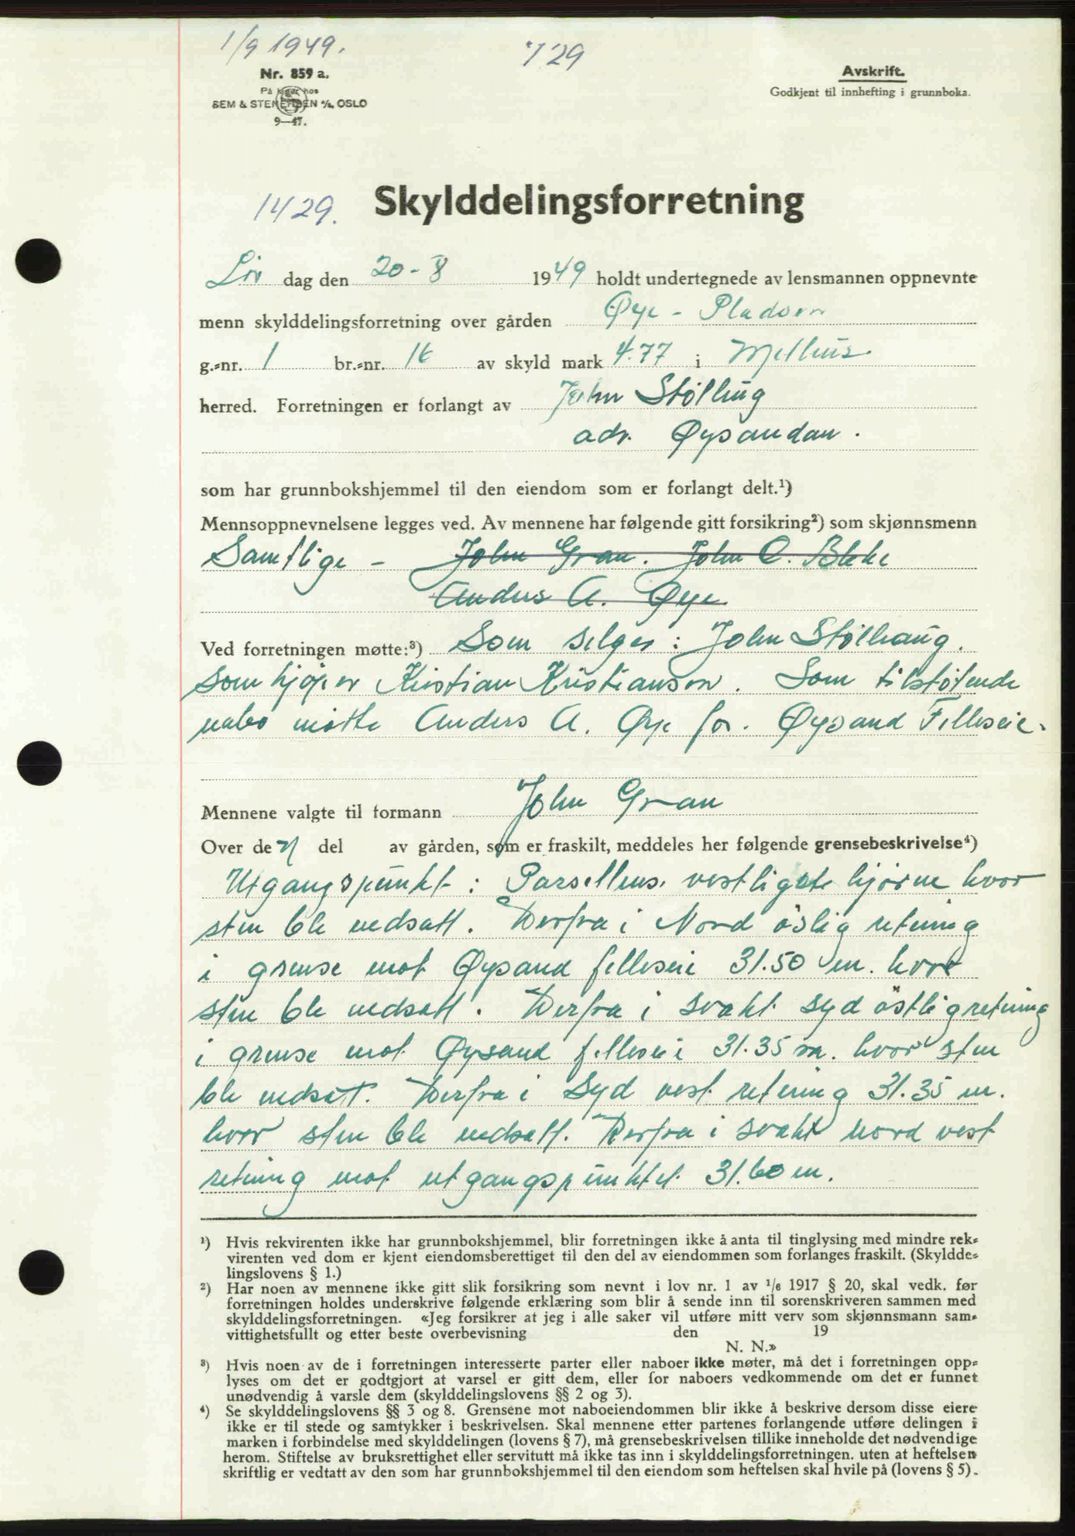 1/9 1949.
729
Nr. 859 a.
På lager hos
SEM & STENERSEN A/S, OSLO
9—47.
Avskrift.
Godkjent til innhefting i grunnboka.
1429.
Skylddelingsforretning
Lør dag den 20-8 1949 holdt undertegnede av lensmannen oppnevnte
menn skylddelingsforretning over gården Øye - Pladsen
g.-nr. 1 br.-nr. 16 av skyld mark 4.77 i Melhus
herred. Forretningen er forlangt av John Stølhaug
adr. Øysandan.
som har grunnbokshjemmel til den eiendom som er forlangt delt.¹)
Mennsoppnevnelsene legges ved. Av mennene har følgende gitt forsikring²) som skjønnsmenn
Samtlige - John Gran. John O. Bleke
Anders A. Øye
Ved forretningen møtte:³) Som selger: John Stølhaug.
Som kjøper Kristian Kristiansen. Som tilstøtende
nabo møtte Anders A. Øye for. Øysand Felleseie.
Mennene valgte til formann John Gran
Over den del av gården, som er fraskilt, meddeles her følgende grensebeskrivelse⁴)
Utgangspunkt: Parsellens vestligste hjørne hvor
sten ble nedsatt. Derfra i Nord östlig retning
i grense mot Øysand felleseie 31.50 m. hvor
sten ble nedsatt. Derfra i svakt syd östlig retning
i grense mot Øysand felleseie 31.35 m. hvor sten
ble nedsatt. Derfra i Syd vest retning 31.35 m.
hvor sten ble nedsatt. Derfra i svakt nord vest
retning mot utgangspunktet 31.60 m.
¹) Hvis rekvirenten ikke har grunnbokshjemmel, blir forretningen ikke å anta til tinglysing med mindre rek-
virenten ved dom er kjent eiendomsberettiget til den del av eiendommen som forlanges fraskilt. (Skyldde-
lingslovens § 1.)
²) Har noen av mennene ikke gitt slik forsikring som nevnt i lov nr. 1 av ¹/₆ 1917 § 20, skal vedk. før
forretningen holdes underskrive følgende erklæring som blir å sende inn til sorenskriveren sammen med
skylddelingsforretningen. «Jeg forsikrer at jeg i alle saker vil utføre mitt verv som skjønnsmann sam-
vittighetsfullt og etter beste overbevisning den 19
N. N.»
³) Hvis noen av de i forretningen interesserte parter eller naboer ikke møter, må det i forretningen opp-
lyses om det er godtgjort at varsel er gitt dem, eller for naboers vedkommende om det er funnet
unødvendig å varsle dem (skylddelingslovens §§ 2 og 3).
⁴) Se skylddelingslovens §§ 3 og 8. Grensene mot naboeiendommen blir ikke å beskrive dersom disse eiere
ikke er til stede og samtykker i beskrivelsen. Skal mennene etter partenes forlangende utføre delingen i
marken i forbindelse med skylddelingen (lovens § 7), må grensebeskrivelsen tillike inneholde det nødvendige
herom. Stiftelse av bruksrettighet eller servitutt må ikke tas inn i skylddelingsforretningen, uten at heftelsen
skriftlig er vedtatt av den som har grunnbokshjemmel til den eiendom som heftelsen skal hvile på (lovens § 5).